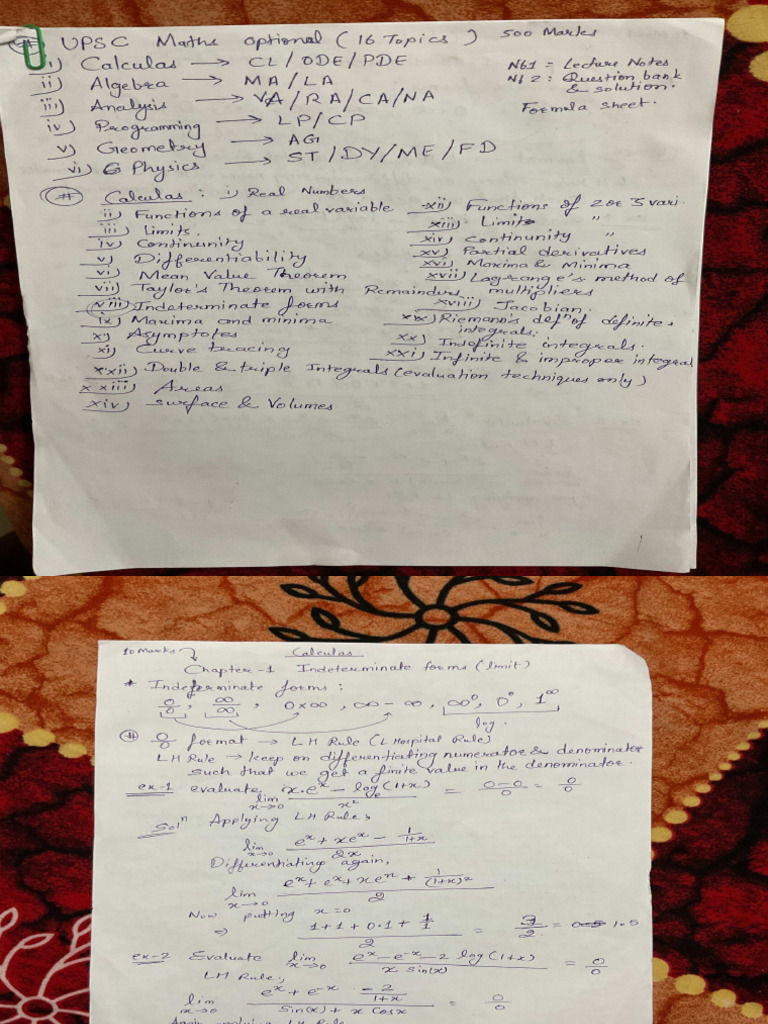 UPSC Maths optional ( 16 Topics ) 500 Marks
i) Calculas → CL / ODE / PDE
NB1 = Lecture Notes
ii) Algebra → MA / LA
NB 2 : Question bank & solution.
iii) Analysis → VA / RA / CA / NA
Formula sheet.
iv) Programming → LP / CP
v) Geometry → AG
vi) Physics → ST / DY / ME / FD
# Calculas : i) Real Numbers
ii) Functions of a real variable
iii) Limits,
iv) Continunity
v) Differentiability
vi) Mean Value Theorem
vii) Taylor's Theorem with Remainders
viii) Indeterminate forms
ix) Maxima and minima
x) Asymptotes
xi) Curve tracing
xii) Functions of 2 or 3 vari.
xiii) Limits "
xiv) continunity "
xv) Partial derivatives
xvi) Maxima & Minima
xvii) Lagrange's method of multipliers
xviii) Jacobian.
xix) Riemann's defn of definite integrals.
xx) Indefinite integrals.
xxi) Infinite & improper integral
xxii) Double & triple Integrals (evaluation techniques only)
xxiii) Areas
xiv) surface & Volumes
Calculas
10 Marks
Chapter-1 Indeterminate forms (limit)
* Indeterminate forms :
0/0, ∞/∞, 0×∞, ∞-∞, ∞⁰, 0⁰, 1^∞
log.
# 0/0 format → LH Rule (L Hospital Rule)
LH Rule → keep on differentiating numerator & denominator
such that we get a finite value in the denominator.
ex-1 evaluate lim x→0 (x.e^x - log_e(1+x))/x² = (0-0)/0 = 0/0
Soln Applying LH Rule,
lim x→0 (e^x + xe^x - 1/(1+x))/2x
Differentiating again,
lim x→0 (e^x + e^x + xe^x + 1/(1+x)²)/2
Now putting x=0
⇒ (1+1+0.1+1/1)/2 = 3/2 = 1.5
ex-2 Evaluate lim x→0 (e^x - e^-x - 2 log(1+x))/(x sin(x)) = 0/0
LH Rule,
lim x→0 (e^x + e^-x - 2/(1+x))/(sin(x) + x cosx) = 0/0
Again applying LH Rule